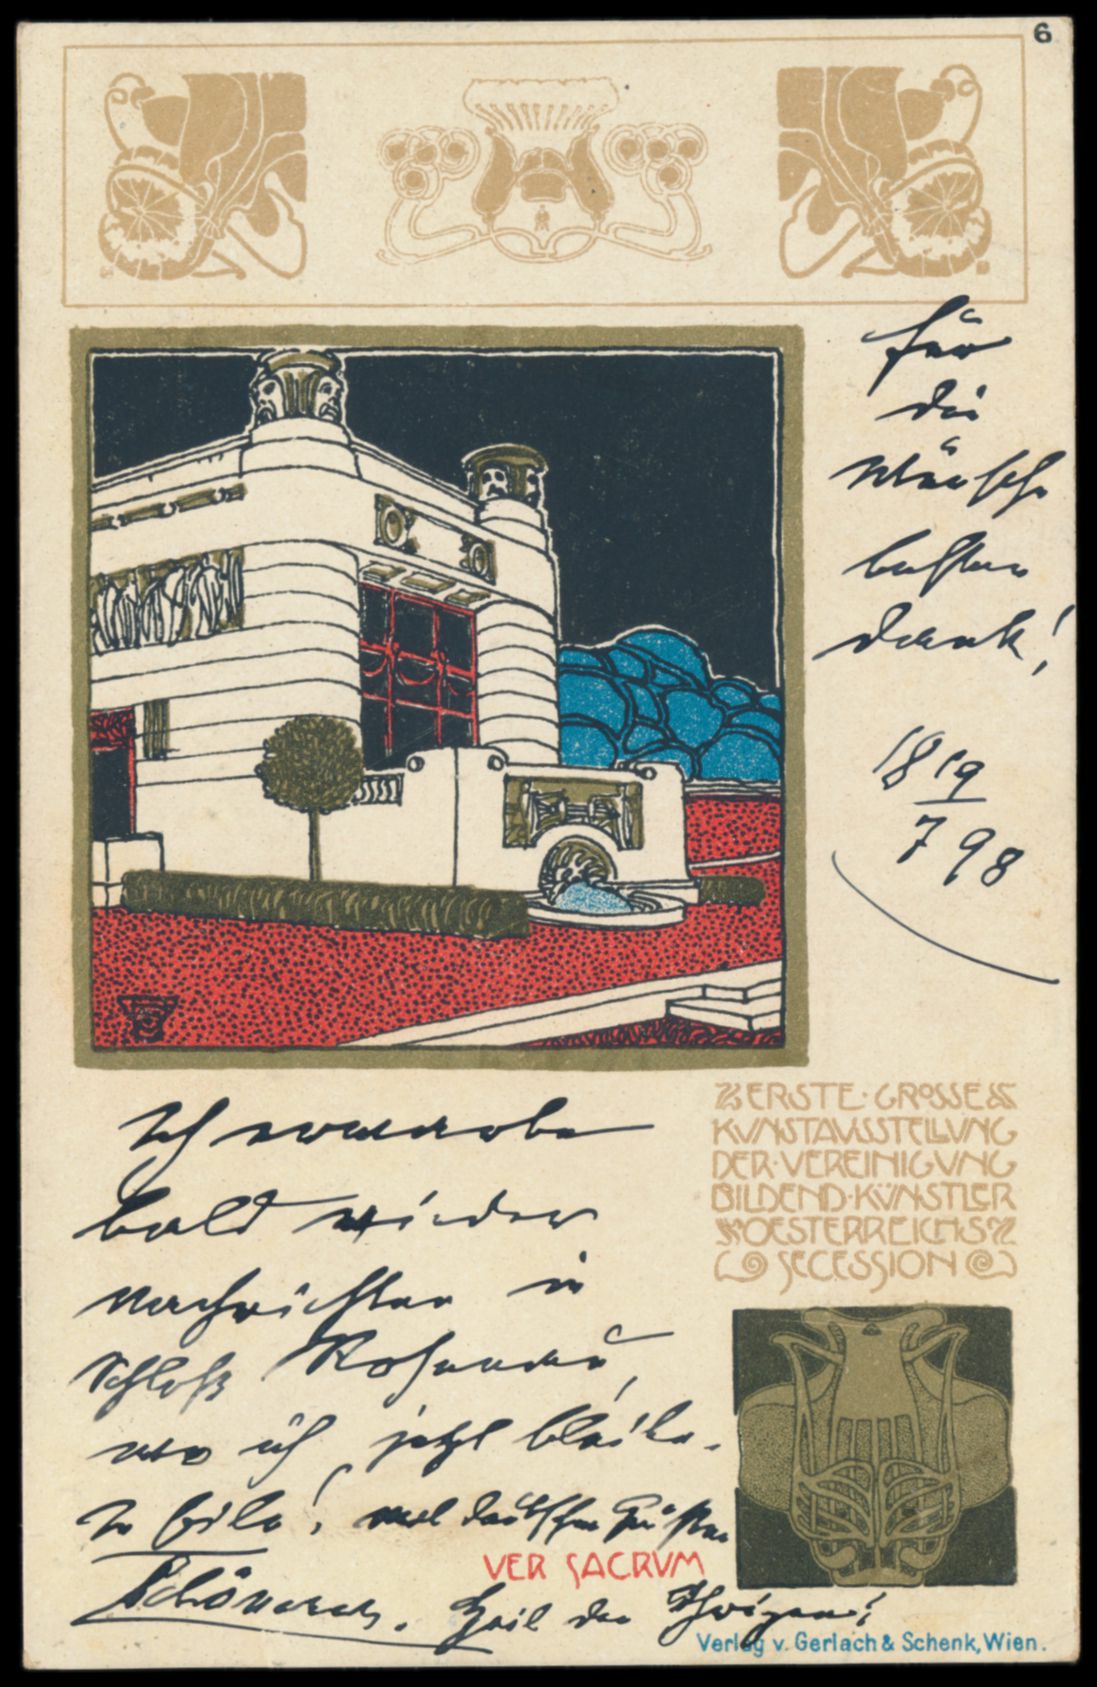 6
Für
die
Wünsche
besten
Dank!
18 19/7 98
ERSTE · GROSSE
KVNSTAVSSTELLVNG
DER · VEREINIGVNG
BILDEND · KÜNSTLER
OESTERREICHS
SECESSION
Ich erwarte
bald wieder
Nachrichten in
Schloß Rosenau,
wo ich jetzt bleibe.
In Eile! mit deutschen Grüßen
VER SACRVM
Schönerer. Heil den Ihrigen!
Verlag v. Gerlach & Schenk, Wien.